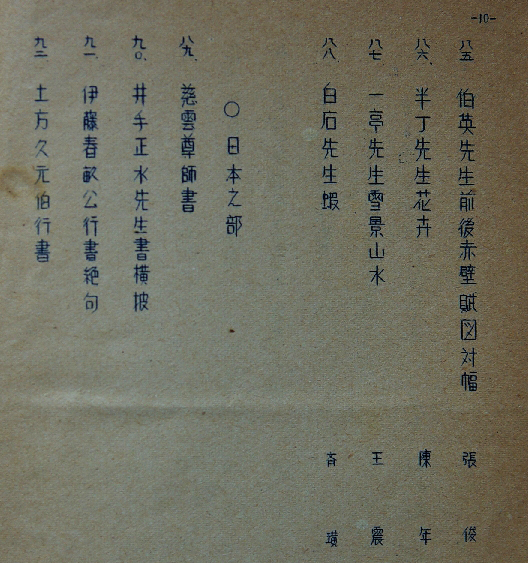 -10-
八五 伯英先生前後赤壁賦図対幅 張俊
八六、半丁先生花卉 陳年
八七 一亭先生雪景山水 王震
八八 白石先生蝦 斉璜
○日本之部
八九、慈雲尊師書
九〇、井手正水先生書横披
九一 伊藤春畝公行書絶句
九二 土方久元伯行書